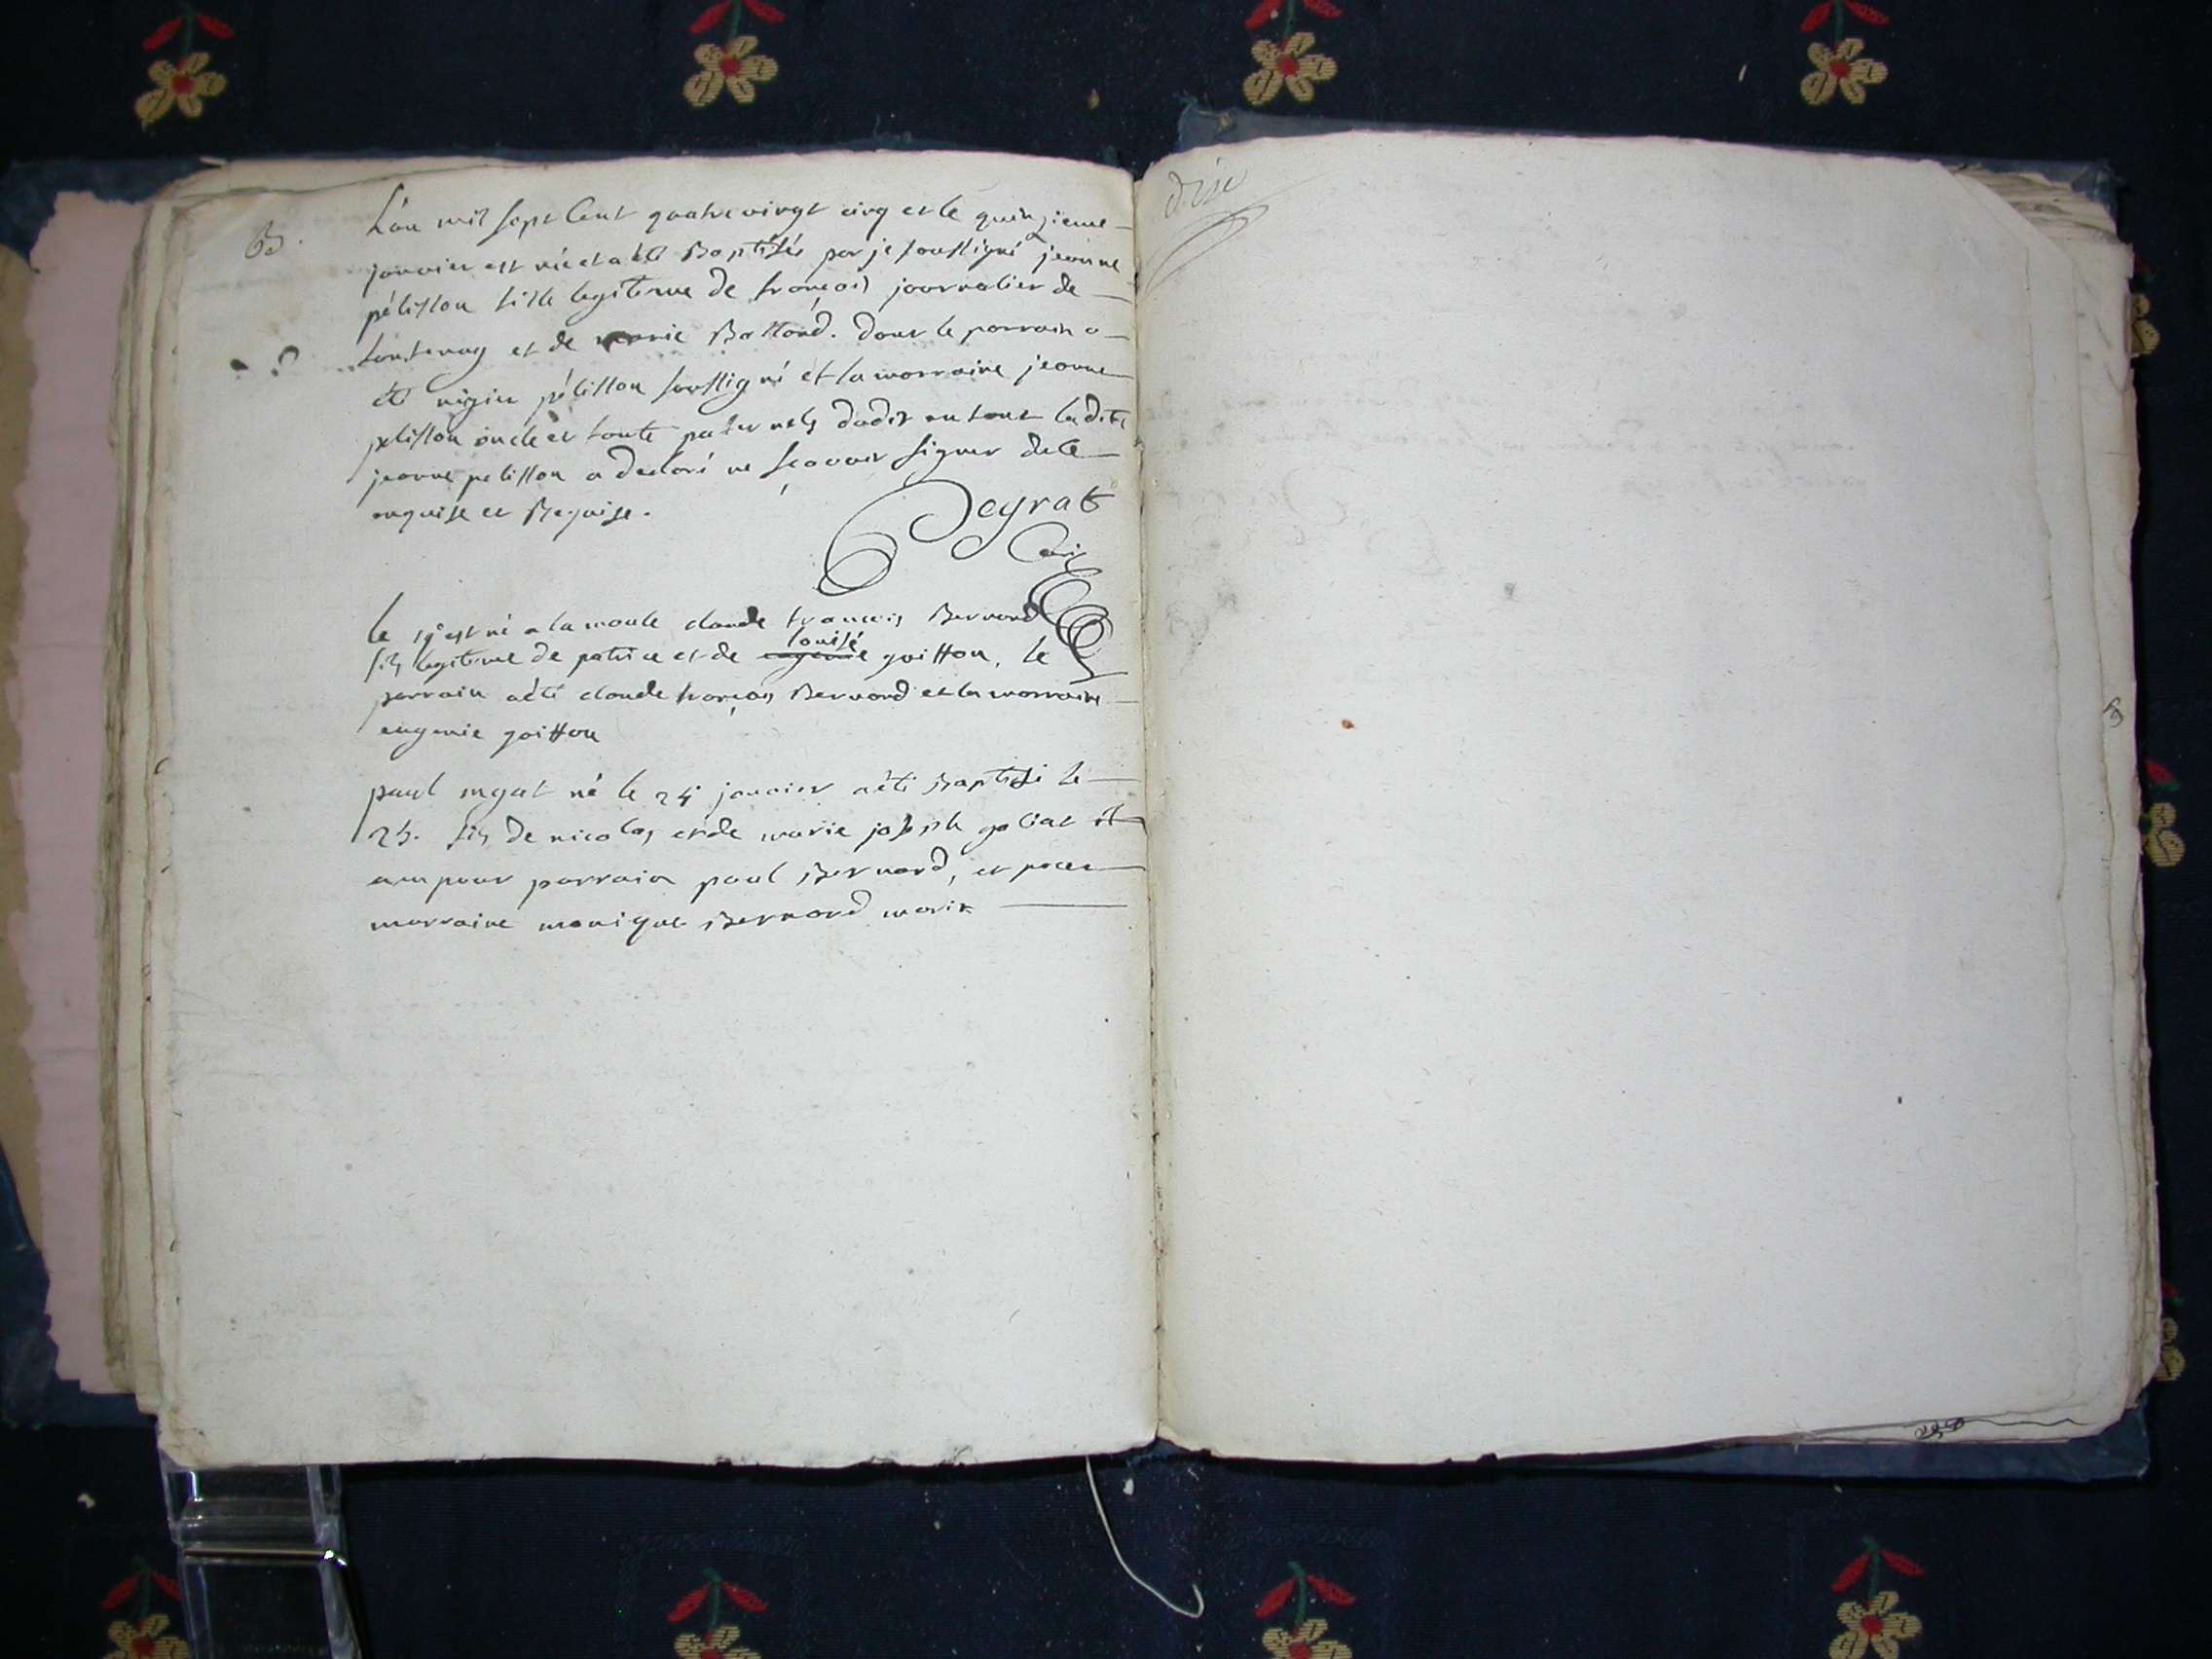 B.
L'an mil sept Cent quatre vingt cinq et le quinzieme
janvier est née et a été Baptisée par je soussigné jeanne
pélisson fille legitime de françois journalier de
fontenay et de marie Baltand. dont le parrain a
été régin pélisson soussigné et la marraine jeanne
pelisson oncle et tante paternels dudit enfant ladite
jeanne pelisson a declaré ne sçavoir signer de ce
enquise et Requise.
Deyrat
Curé
le 19 est né a la moule claude francois Bernard
fils legitime de patrice et de louise guitton, le
parrain a été claude françois Bernard et la marraine
eugenie guitton
paul mgat né le 24 janvier a été Baptisé le
25. fils de nicolas et de marie joseph galiat il
a eu pour parrain paul Bernard, et pour
marraine monique Bernard marin